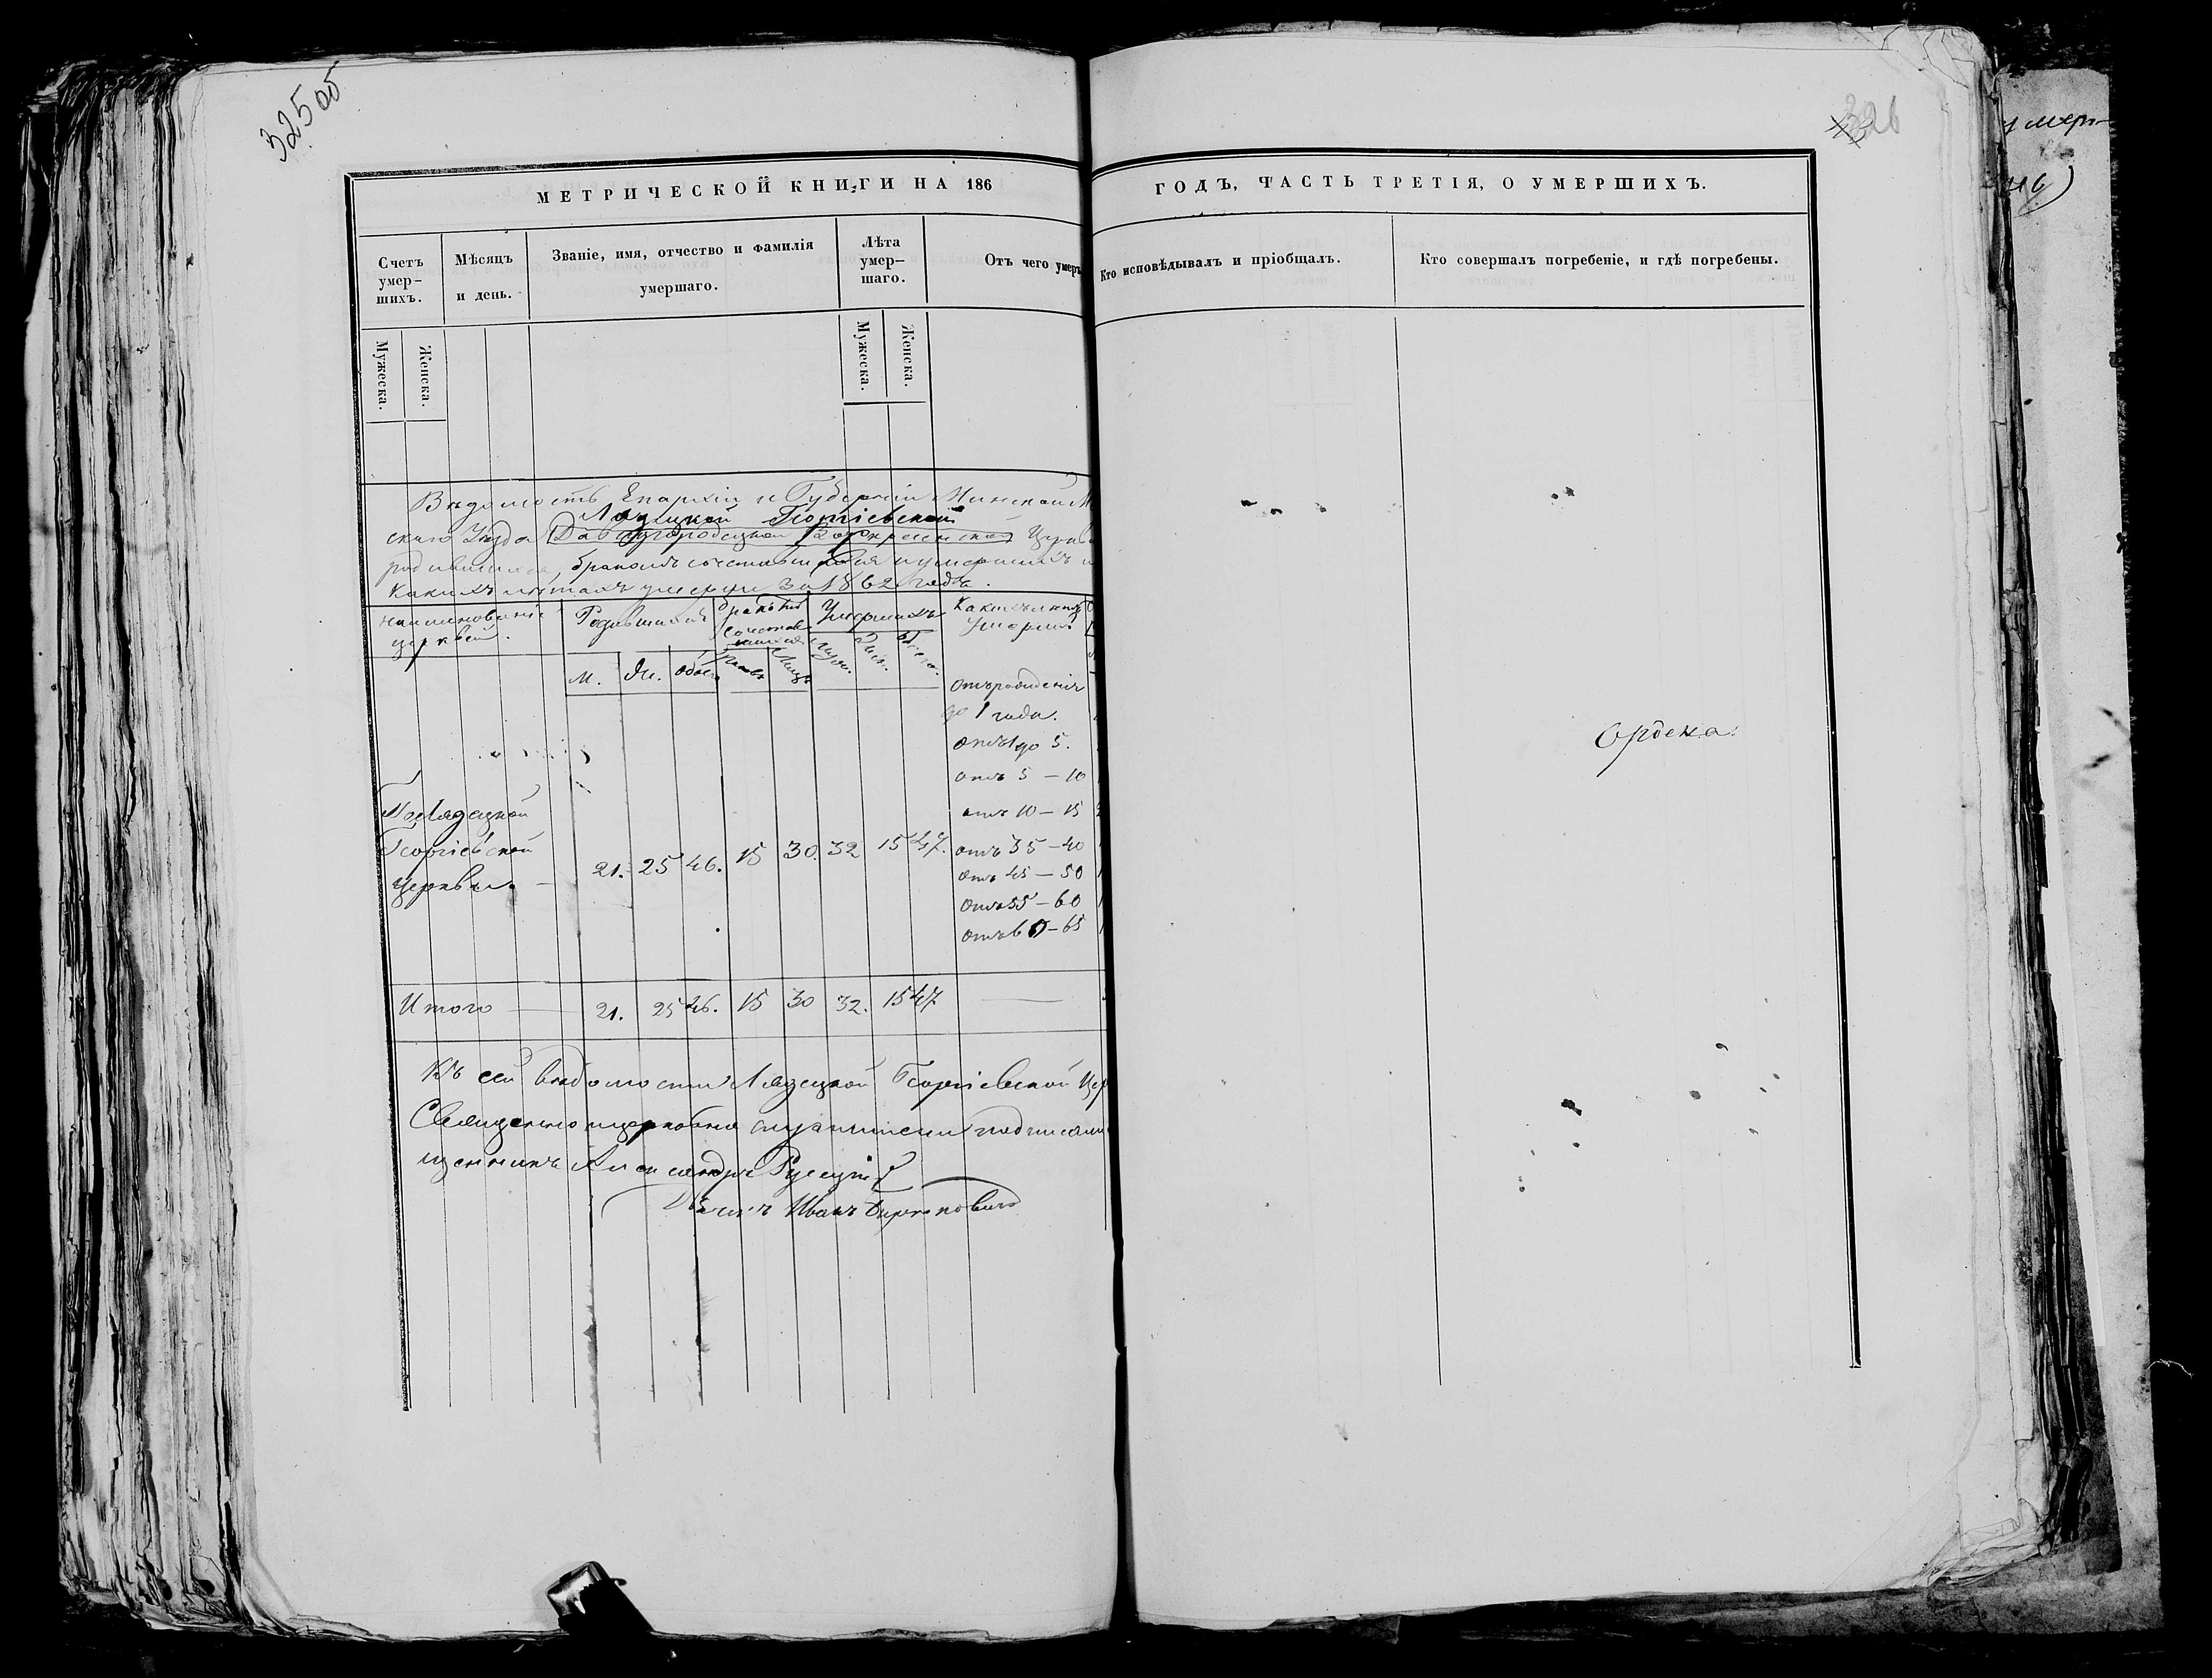 325 об
326
умер-
МЕТРИЧЕСКОЙ КНИГИ НА 186
ГОДЪ, ЧАСТЬ ТРЕТІЯ, О УМЕРШИХЪ.
Счетъ умер-шихъ.
Мѣсяцъ и день.
Званіе, имя, отчество и фамилія умершаго.
Лѣта умер-шаго.
Отъ чего умеръ
Кто исповѣдывалъ и пріобщалъ.
Кто совершалъ погребеніе, и гдѣ погребены.
Мужеска.
Женска.
Мужеска.
Женска.
Вѣдомость Епархіи и Губерніи Минской М
Лядецкой Георгіевской
скаго Уѣзда Давидгородецкой Воскресенской Церкв
родившихся, бракомъ сочетавшихся и умершихъ и
какихъ лѣтахъ умерли за 1862 годъ.
наименованіе церквей.
Родившихся
бракомъ сочетавшихся
Умершихъ
Какихъ лѣтъ умерли
М.
Ж.
обоего
отъ рожденія
до 1 года.
отъ 1 до 5.
отъ 5 — 10
отъ 10 — 15
Лядецкой
Георгіевской
церкви. — 21. 25 46. 15 30. 32 15 47.
отъ 35 — 40
отъ 45 — 50
отъ 55 — 60
отъ 60 — 65
Итого — 21. 25 46. 15 30 32. 15 47 —
Къ сей вѣдомости Лядецкой Георгіевской Цер
Священно церковно служители подписали
щенникъ Александръ Русецкій
Дьячекъ Иванъ